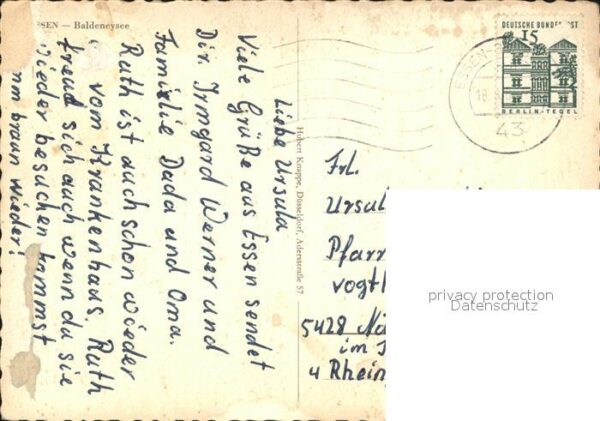 ESSEN — Baldeneysee
Liebe Ursula
Viele Grüße aus Essen sendet
Dir Irmgard Werner und
Familie Dada und Oma.
Ruth ist auch schon wieder
vom Krankenhaus. Ruth
freud sich auch wenn du sie
wieder besuchen kommst
braun wieder!
Hubert Knappe, Düsseldorf, Adersstraße 57
DEUTSCHE BUNDESPOST
15
BERLIN-TEGEL
ESSEN
18
43
Frl.
Ursul
Pfarr
vogt
5428
im
4 Rhein
privacy protection
Datenschutz